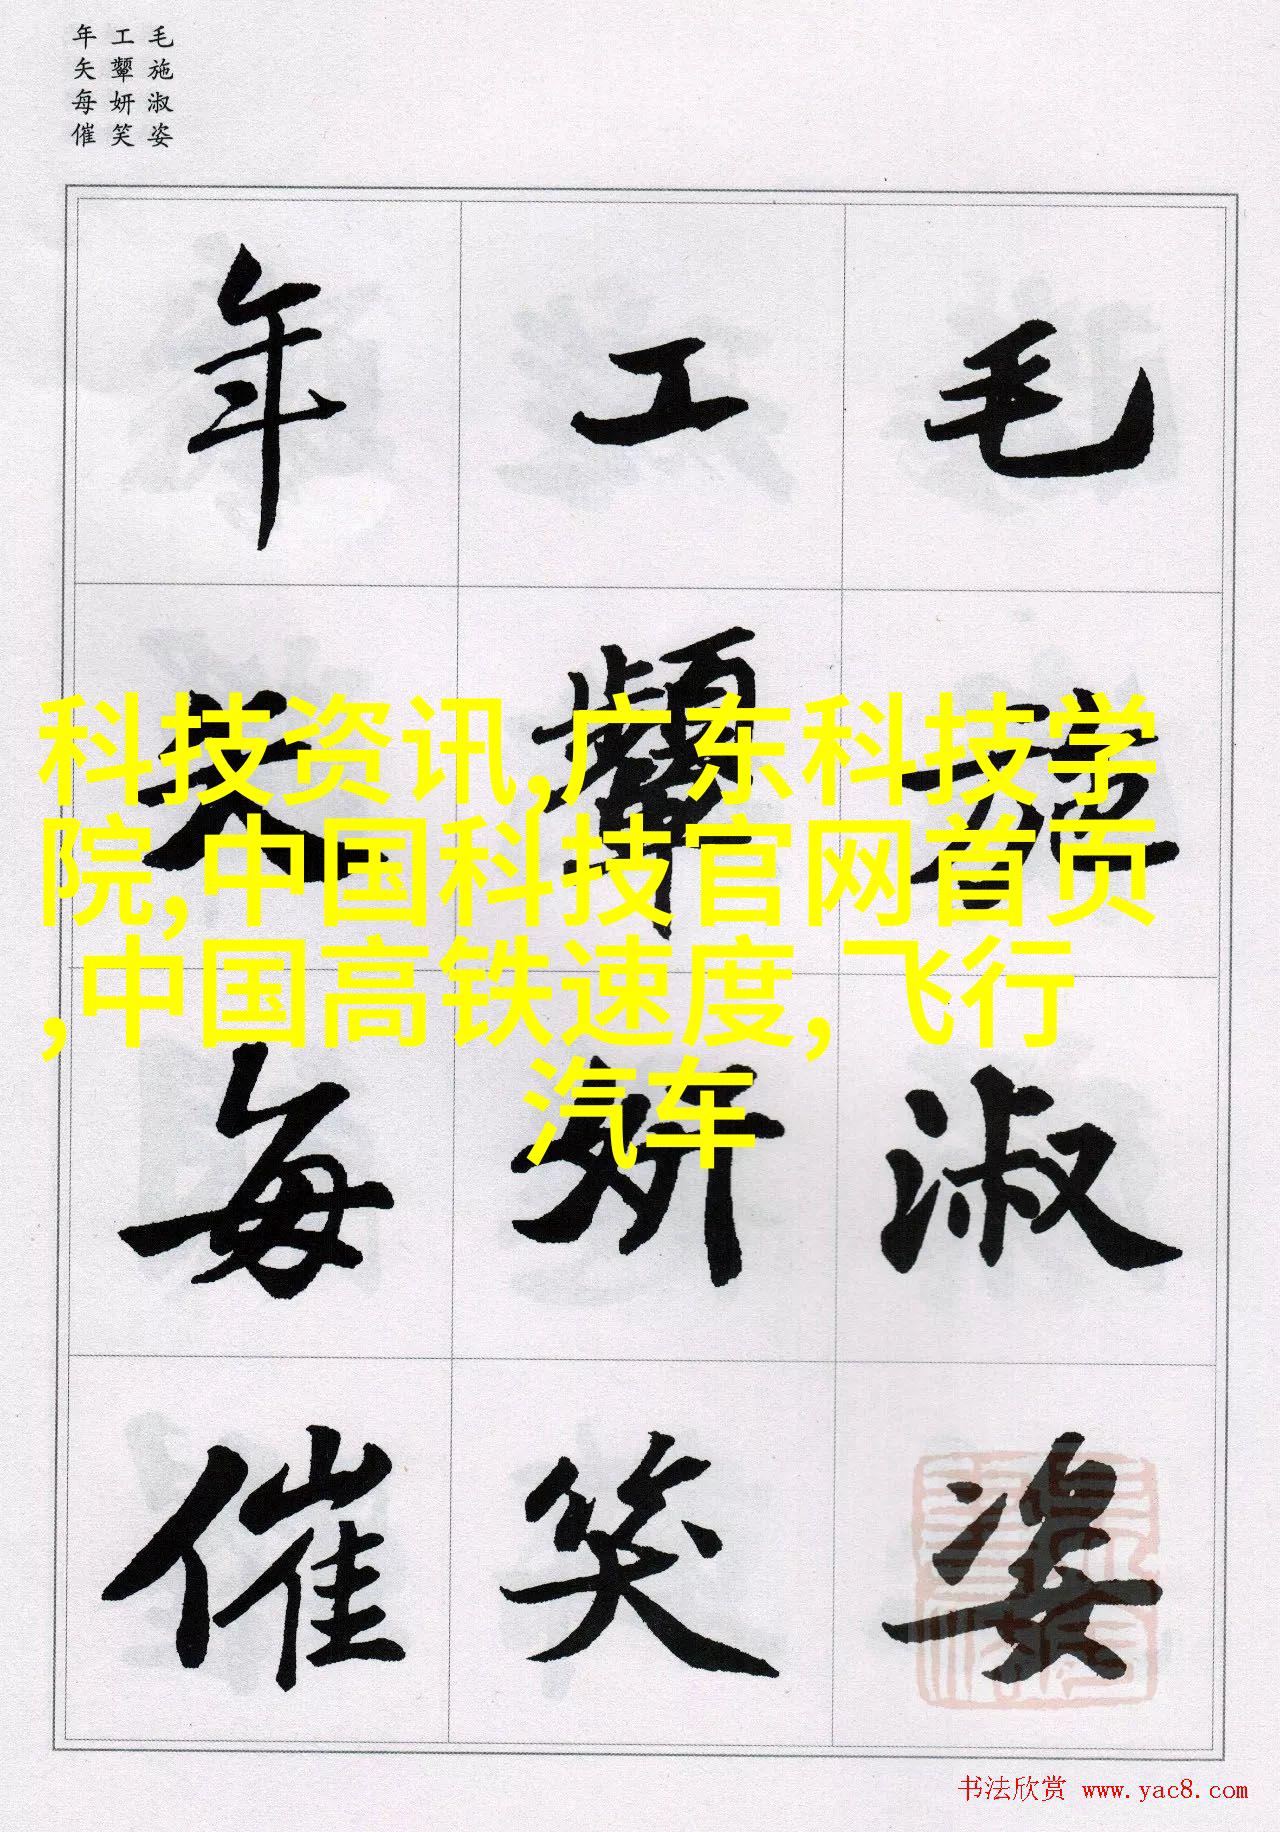 毛施淑姿
工颦妍笑
年矢每催
年 工 毛
矢 颦 施
每 妍 淑
催 笑 姿
科技资讯,广东科技学
院,中国科技官网首页
,中国高铁速度, 飞行
汽车
书法欣赏 www.yac8.com